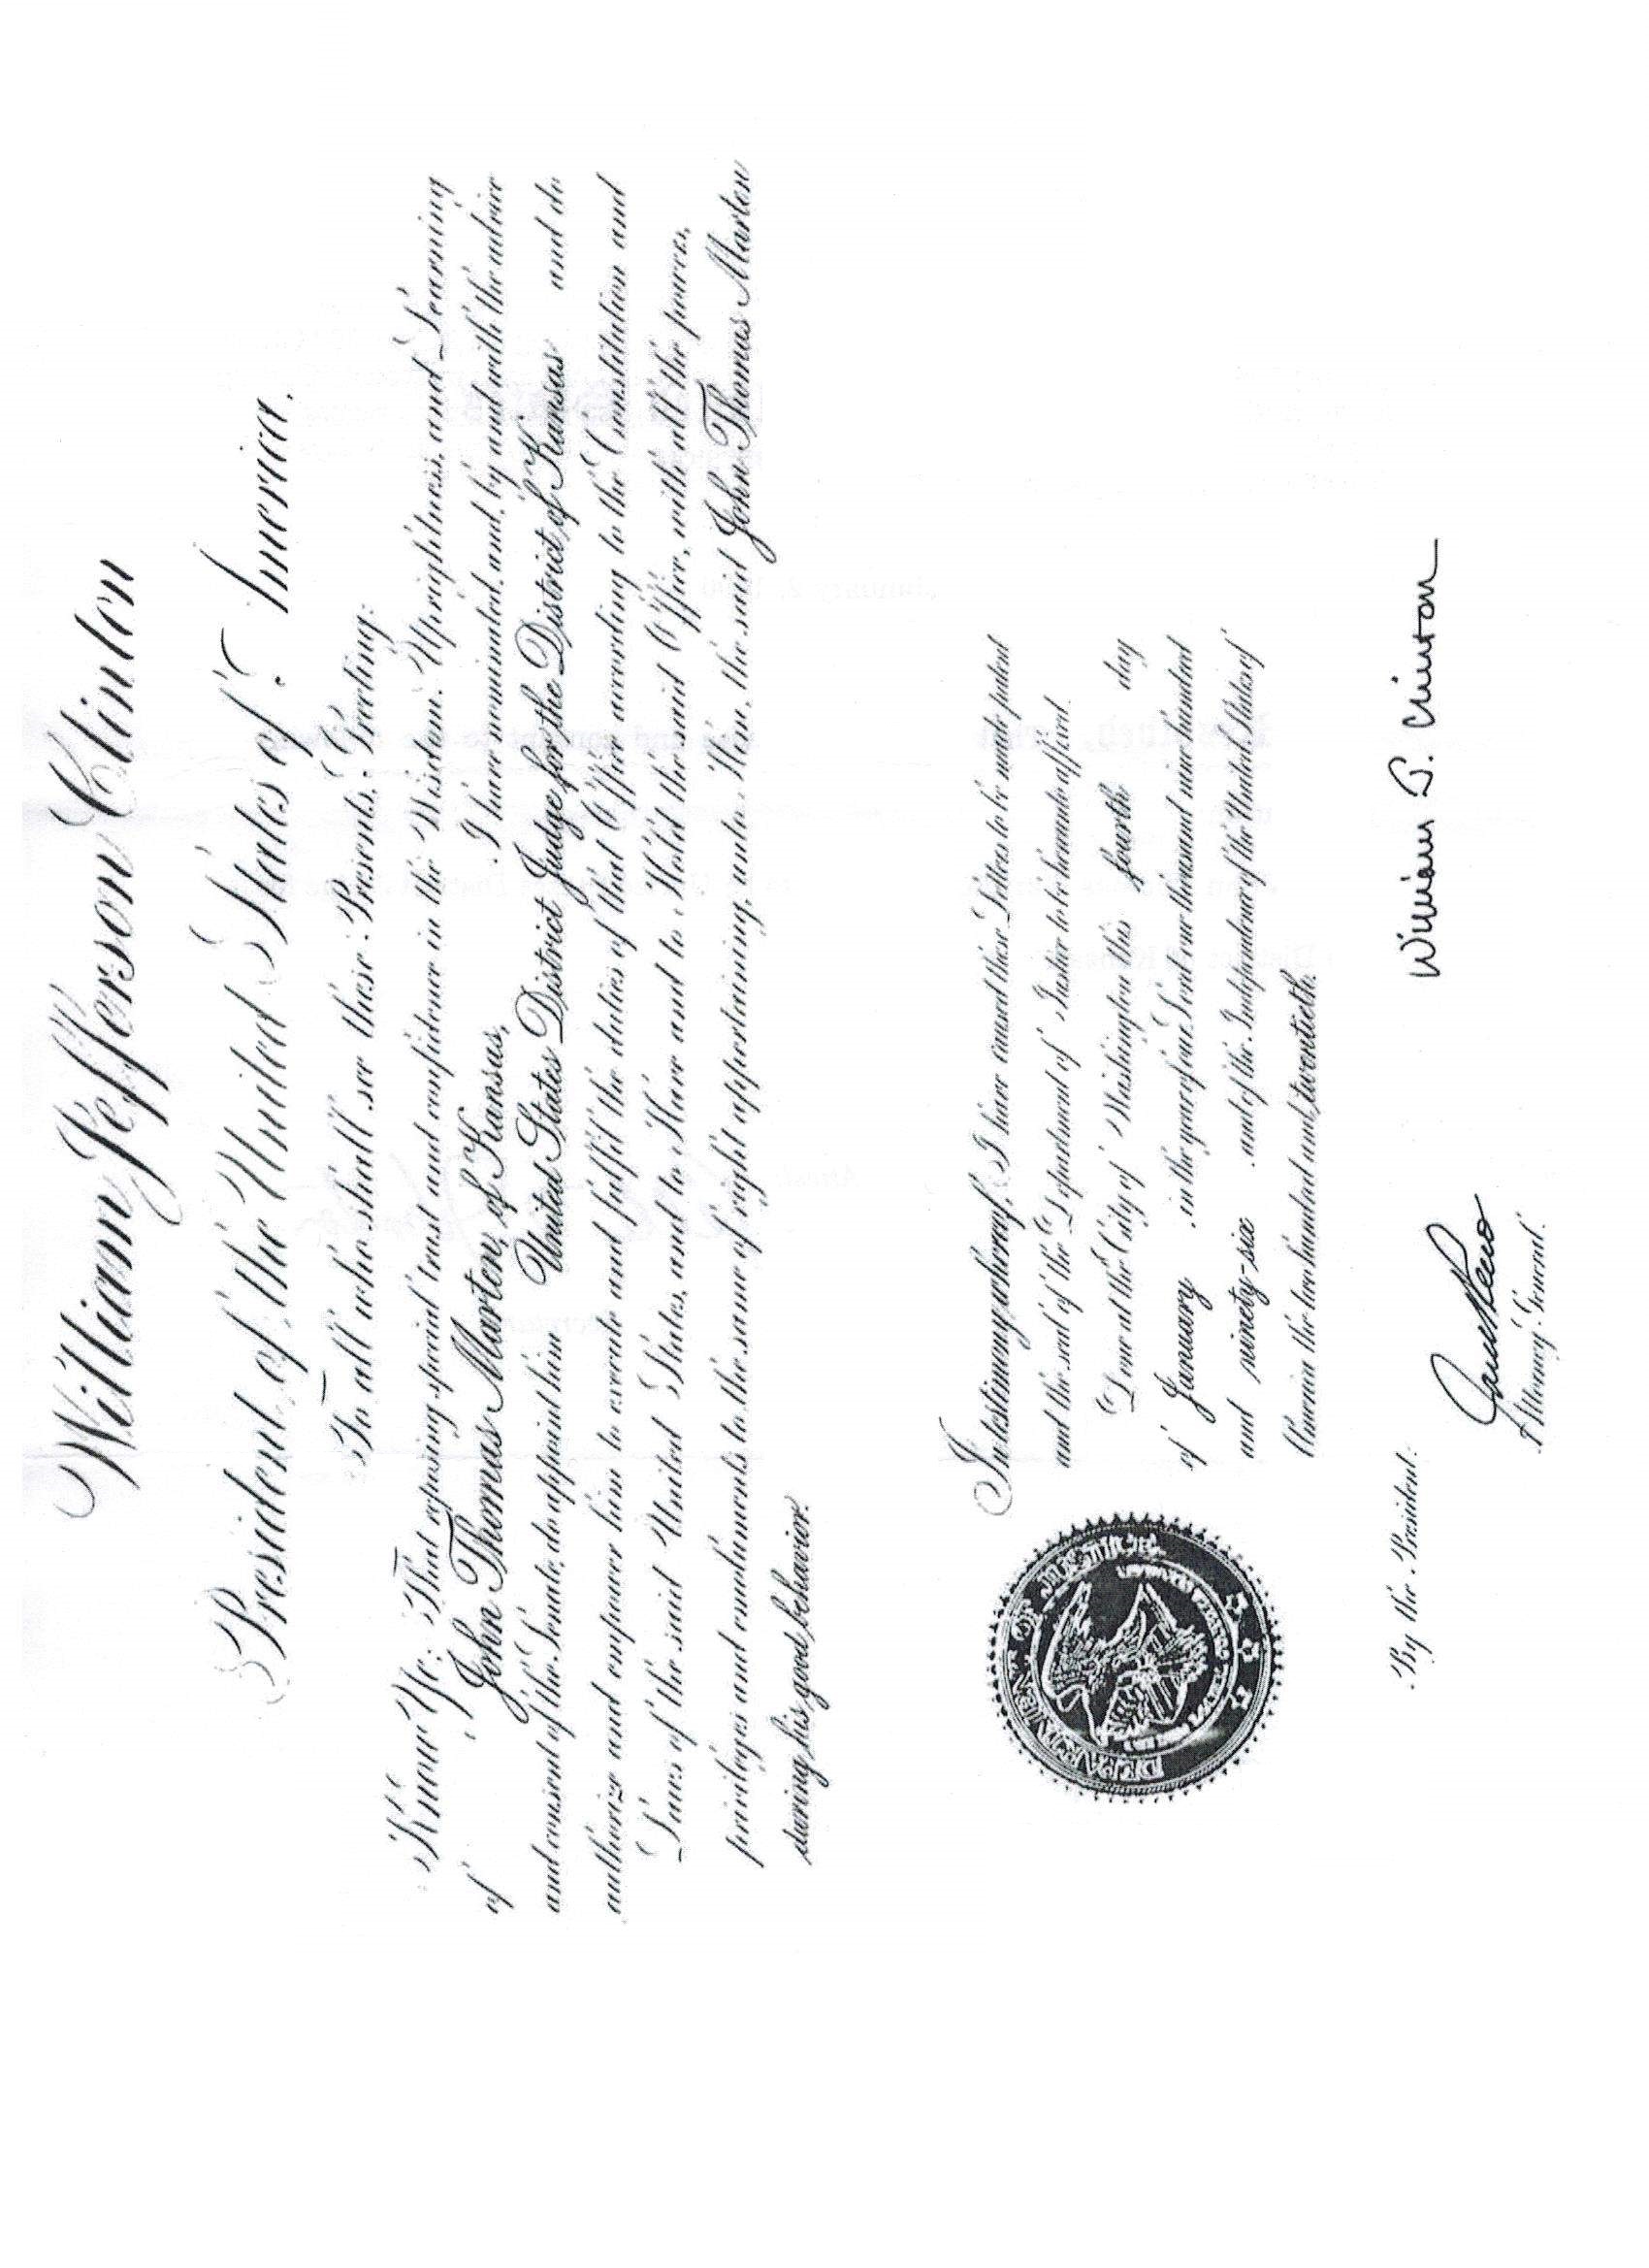 William Jefferson Clinton
President of the United States of America.
To all who shall see these Presents, Greeting:
Know Ye; That reposing special trust and confidence in the Wisdom, Uprightness, and Learning
of John Thomas Marten, of Kansas, I have nominated, and, by and with the advice
and consent of the Senate, do appoint him United States District Judge for the District of Kansas and do
authorize and empower him to execute and fulfil the duties of that Office according to the Constitution and
Laws of the said United States, and to Have and to Hold the said Office, with all the powers,
privileges and emoluments to the same of right appertaining, unto Him, the said John Thomas Marten
during his good behavior.
In testimony whereof, I have caused these Letters to be made patent
and the seal of the Department of Justice to be hereunto affixed.
Done at the City of Washington this fourth day
of January in the year of our Lord one thousand nine hundred
and ninety-six and of the Independence of the United States of
America the two hundred and twentieth.
DEPARTMENT OF JUSTICE
William J. Clinton
By the President:
Janet Reno
Attorney General.